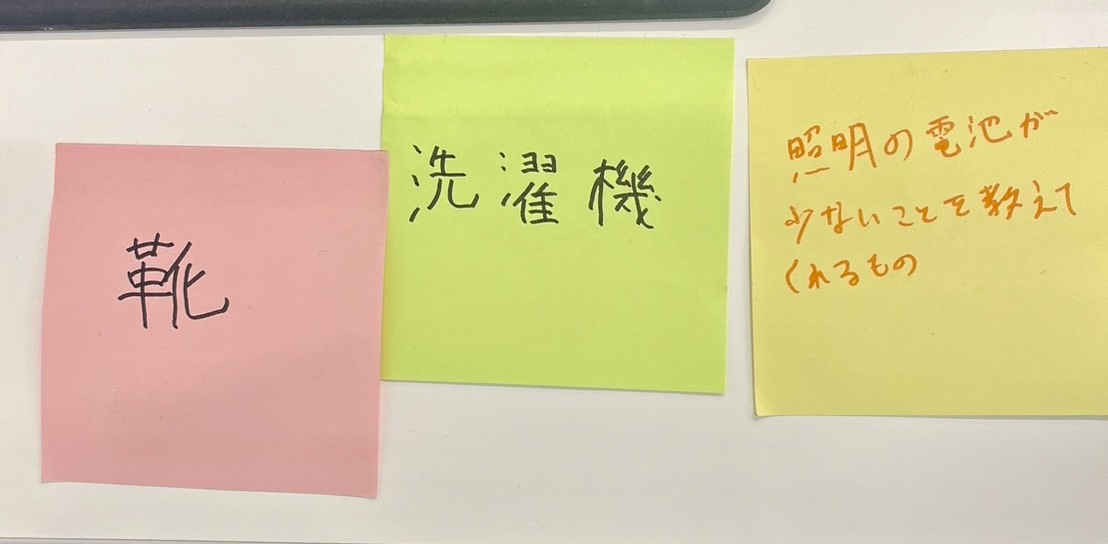 靴
洗濯機
照明の電池が
少ないことを教えて
くれるもの